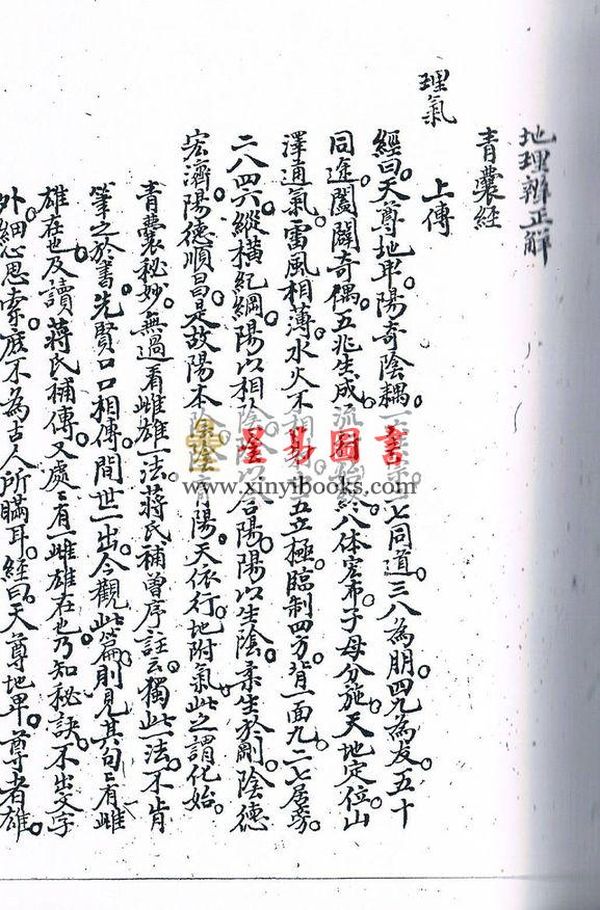 地理辨正解
青囊經
理氣 上傳
經曰。天尊地卑。陽奇陰耦。一 七同道。三八為朋。四九為友。五十
同途。闔闢奇偶。五兆生成。流 終。八体宏布。子母分施。天地定位。山
澤通氣。雷風相薄。水火不相 五立極。臨制四方。背一面九。二七居旁。
二八四六。縱橫紀綱。陽以相 陰。陰以含陽。陽以生陰。柔生於剛。陰德
宏濟。陽德順昌。是故陽本陰。陰育陽。天依行。地附氣。此之謂化始。
青囊秘妙。無過看雌雄一法。蔣氏補曾序註云。獨此一法。不肯
筆之於書。先賢口口相傳。間世一出。今觀此篇。則見其句々有雌
雄在也。及讀蔣氏補傳。又處々有一雌雄在也。乃知秘訣。不出文字
外。細心思索。庶不為古人所瞞耳。經曰。天尊地卑。尊者雄。
星易圖書
www.xinyibooks.com